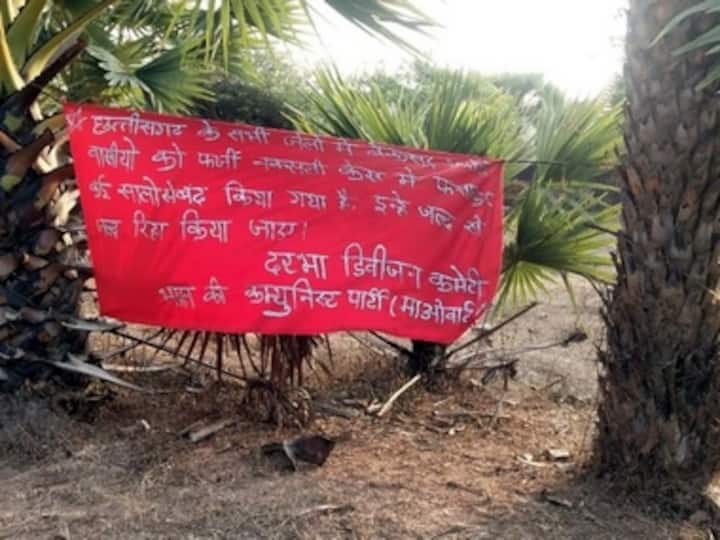 छत्तीसगढ के सभी जेलो में
वासीयो को फर्जी नक्सली केस में
कई सालो से बंद किया गया है, इन्हे जल्द से
जल्द रिहा किया जाए।
दरभा डिवीजन कमेटी
की कम्युनिस्ट पार्टी (माओवादी)